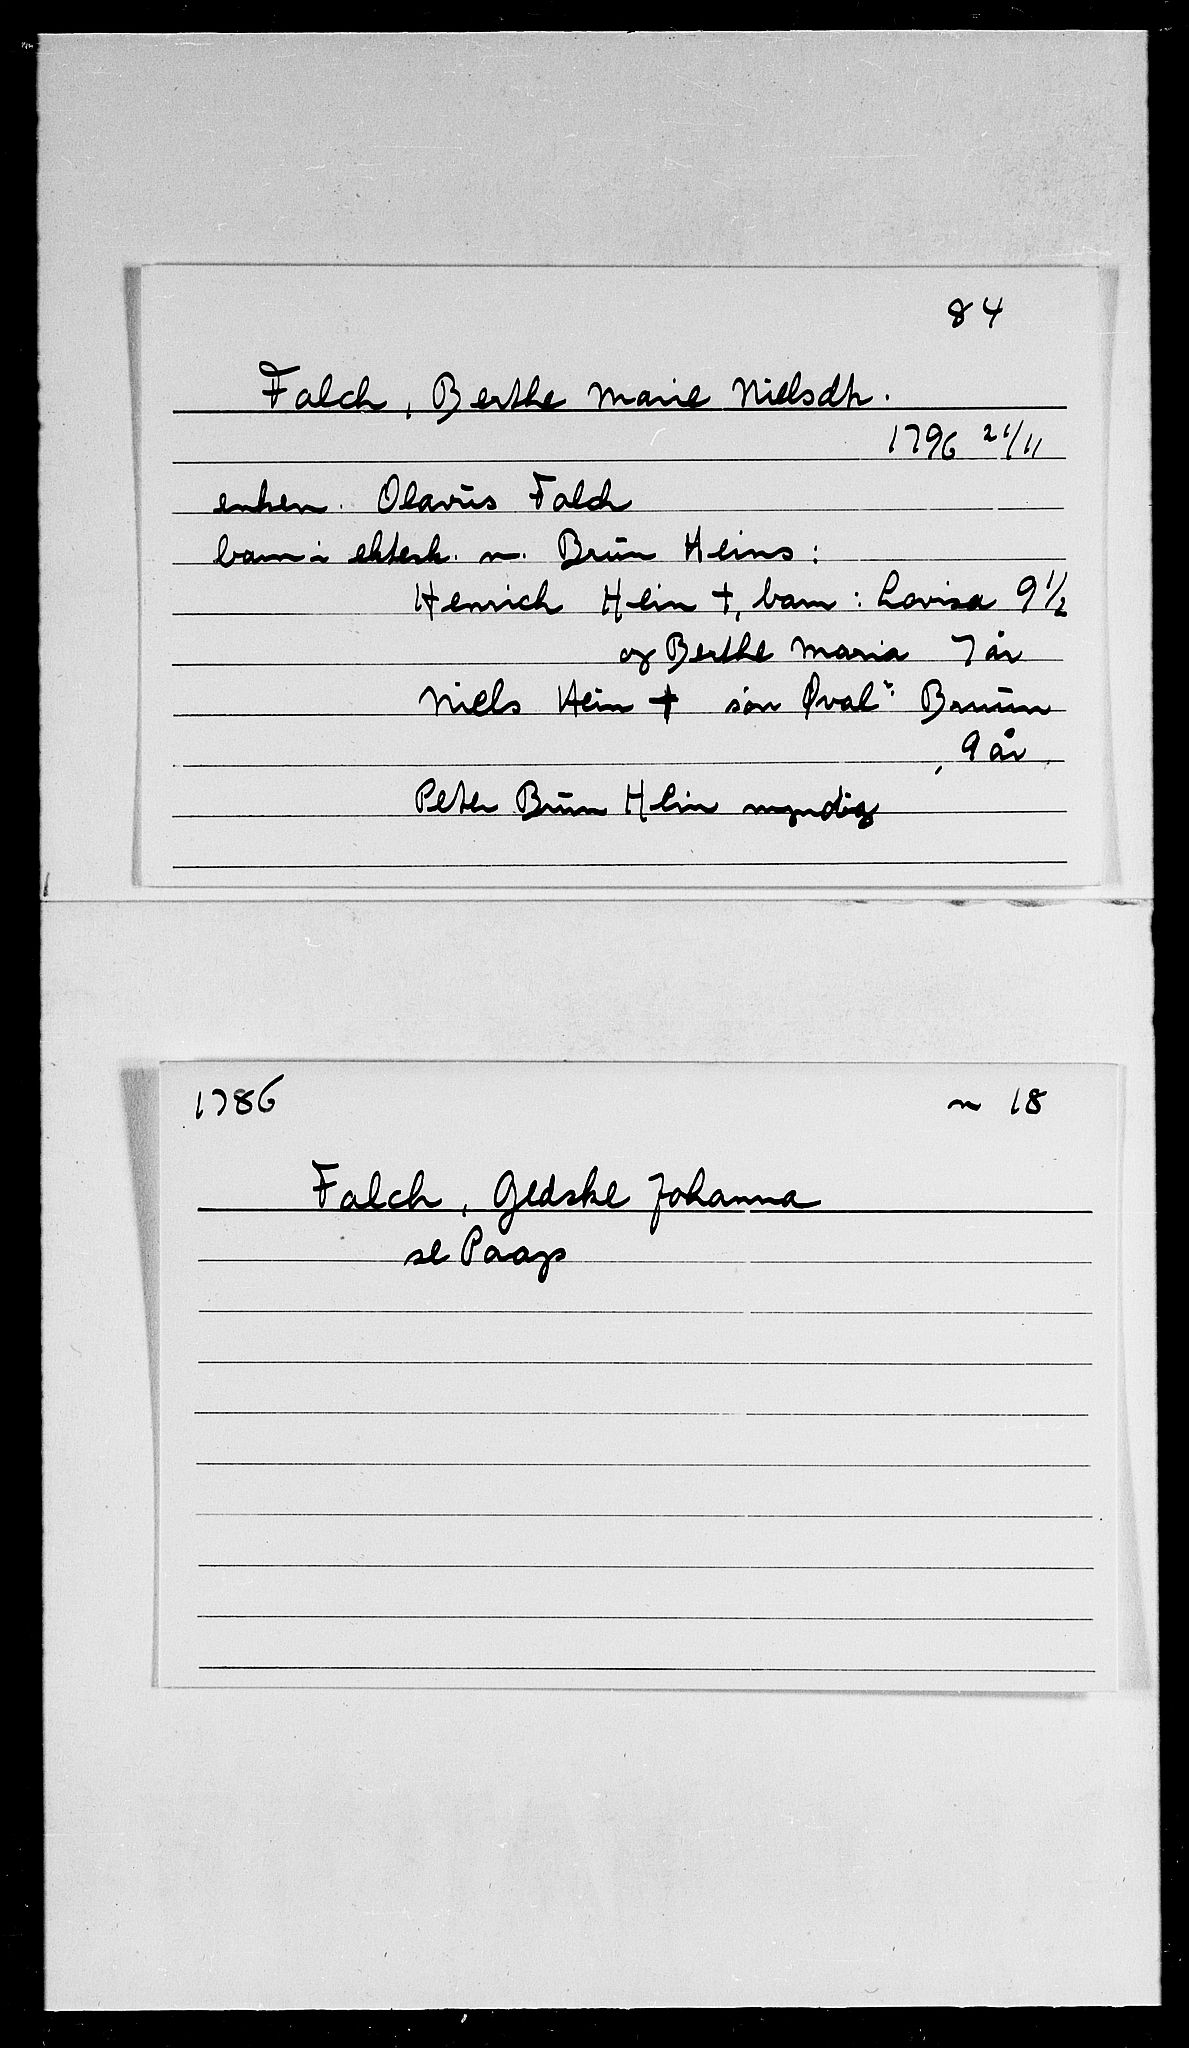 84
Falch, Berthe Marie Nielsdtr.
1796 21/11
enken. Olavus Falch
barn i ektesk. m. Brun Heins:
Henrich Hein †, barn: Lovisa 9 1/2
og Berthe Maria 7 år
Niels Hein † sön Bruun
9 år
Peter Brun Hein myndig
1786
n 18
Falch, Gedske Johanna
se Paap